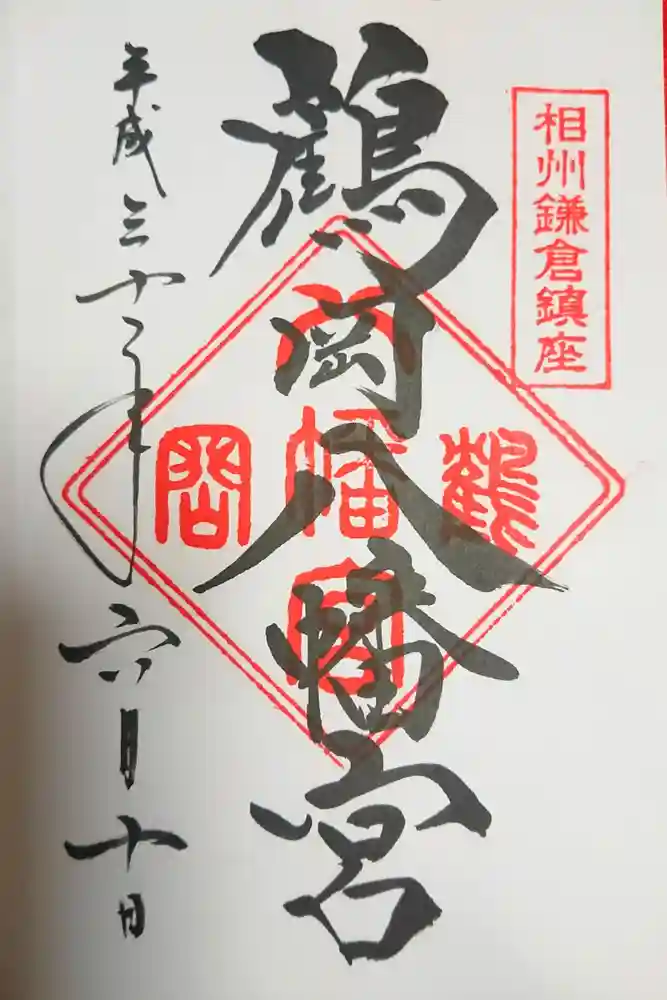 相州鎌倉鎮座
鶴岡八幡宮
鶴岡
八幡宮
平成三十年六月十日